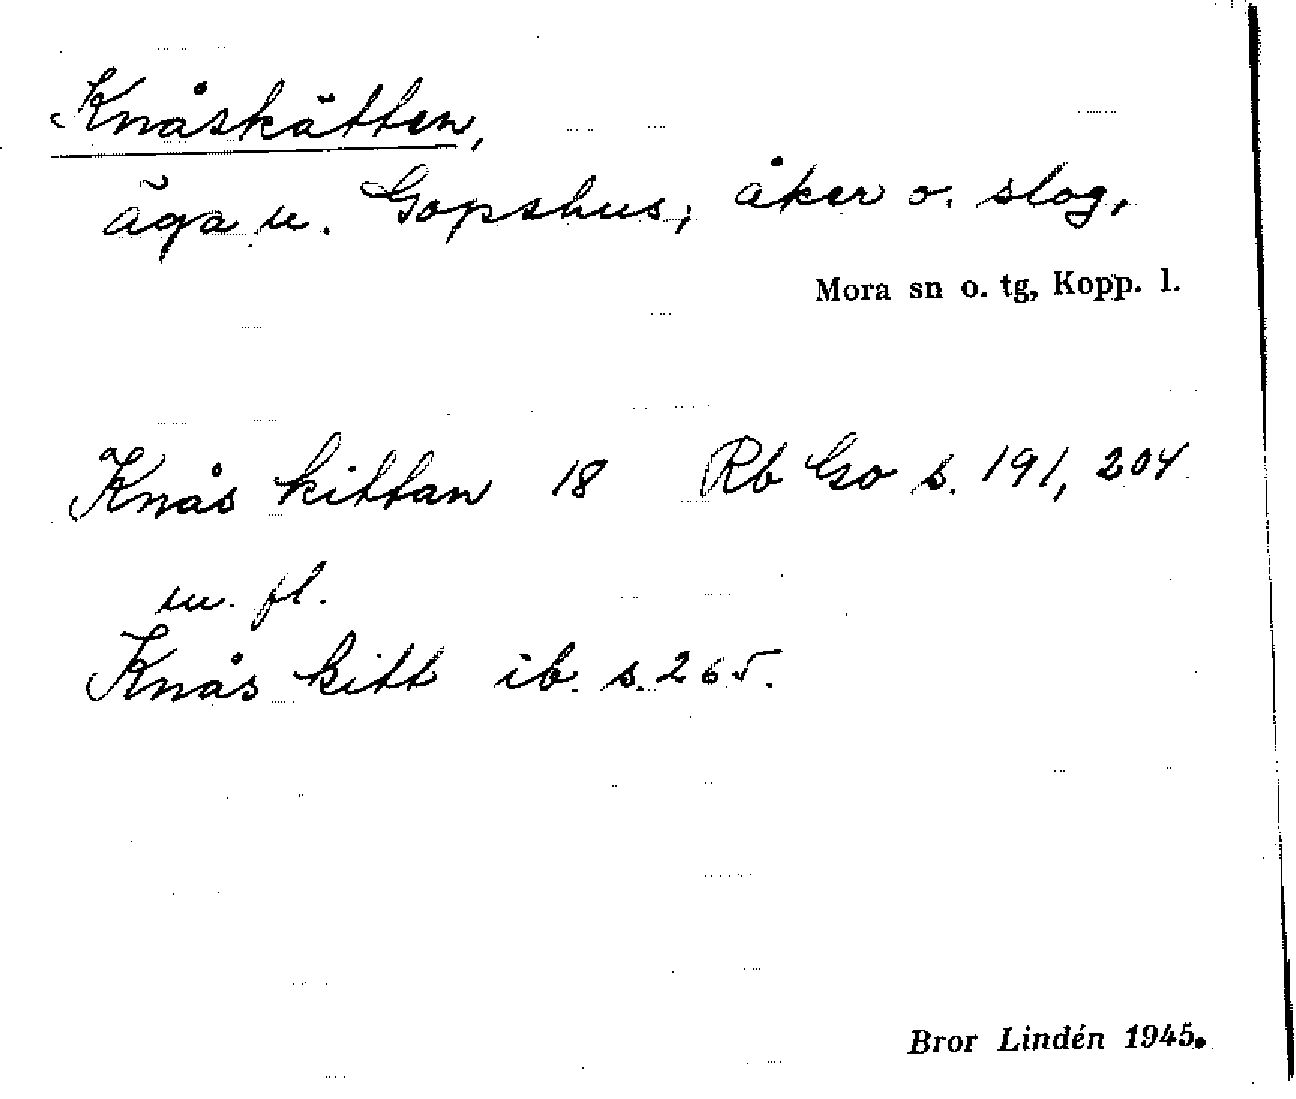 Knåskätten,
äga u. Gopshus; åker o. slog,
Mora sn o. tg, Kopp. l.
Knås kittan 18 Rb Go s. 191, 204
m. fl.
Knås kitt ib. s. 265.
Bror Lindén 1945.